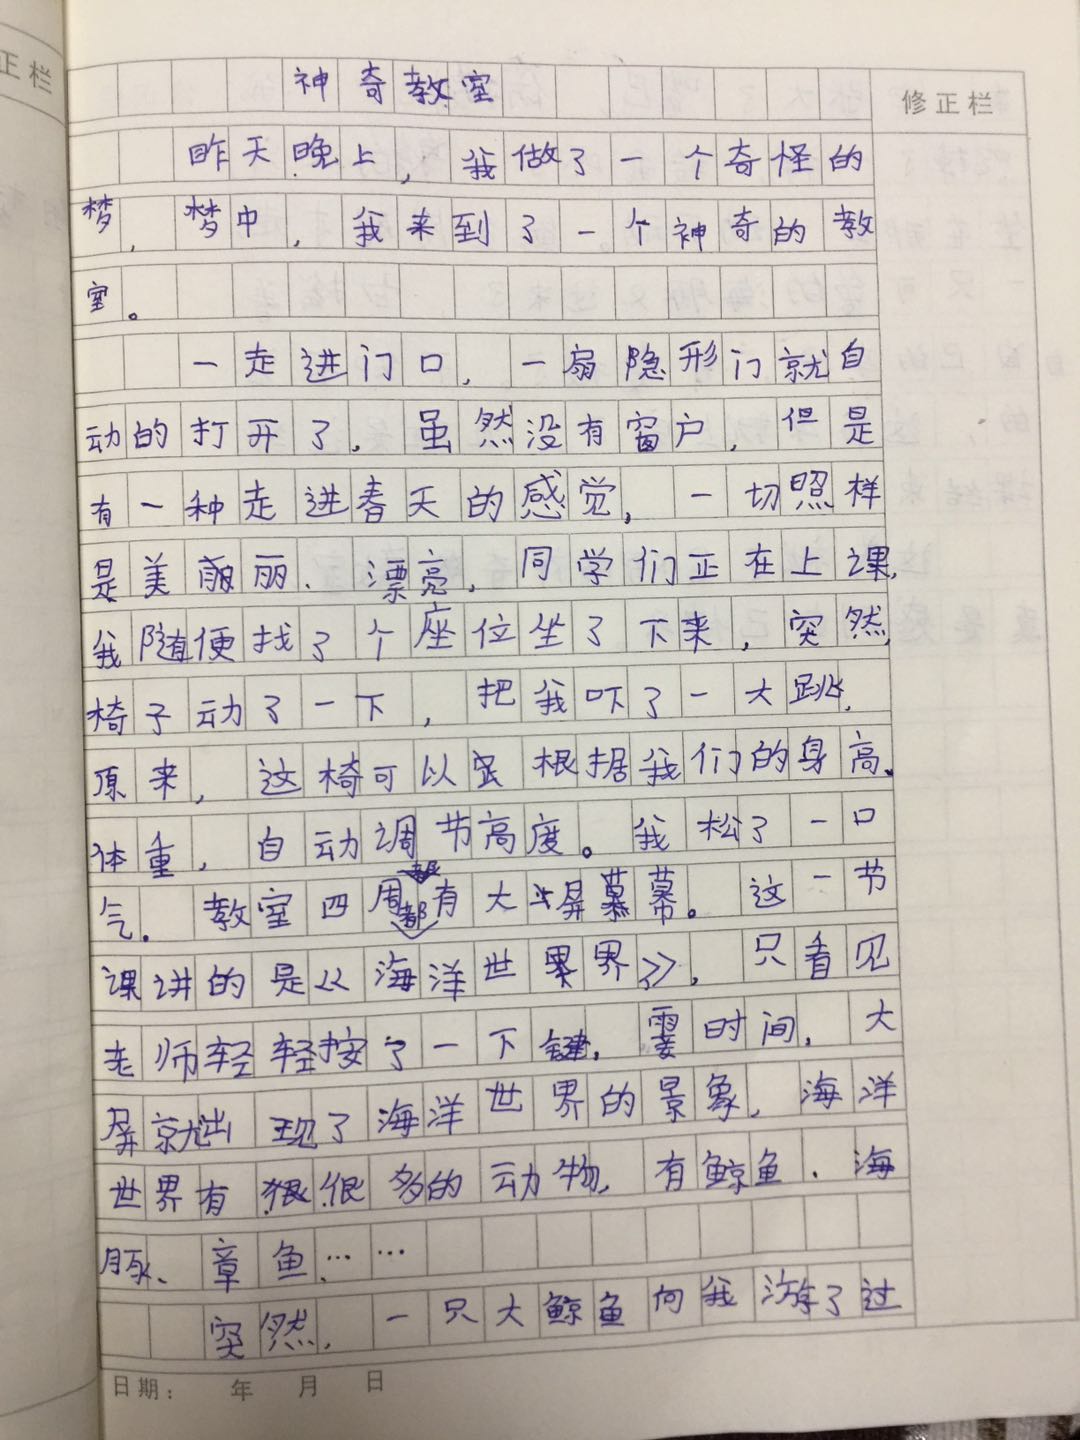 正栏
神奇教室
修正栏
昨天晚上，我做了一个奇怪的
梦，梦中，我来到了一个神奇的教
室。
一走进门口，一扇隐形门就自
动的打开了。虽然没有窗户，但是
有一种走进春天的感觉，一切照样
是美丽、漂亮，同学们正在上课，
我随便找了个座位坐了下来，突然，
椅子动了一下，把我吓了一大跳，
原来，这椅可以根据我们的身高、
体重，自动调节高度。我松了一口
气。教室四周都有大屏幕。这一节
课讲的是《海洋世界》，只看见
老师轻轻按了一下键，霎时间，大
屏就出现了海洋世界的景象，海洋
世界有很多的动物，有鲸鱼、海
豚、章鱼……
突然，一只大鲸鱼向我游了过
日期： 年 月 日